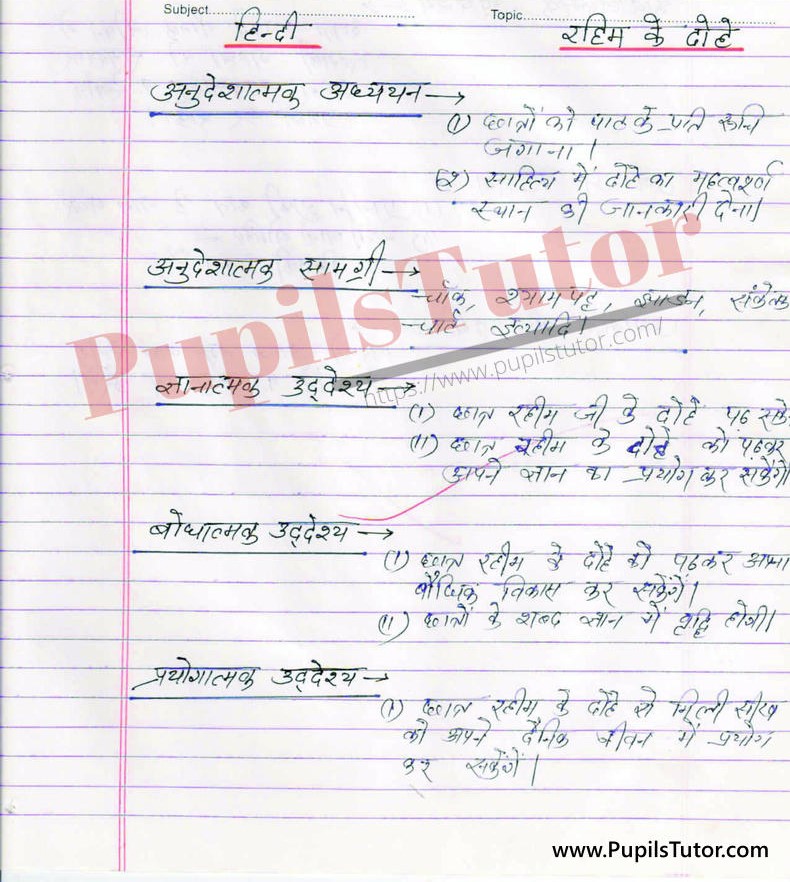 Subject.
Topic.
हिन्दी
रहिम के दोहे
अनुदेशात्मक अध्ययन →
(i) छात्रों को पाठ के प्रति रूचि
जगाना।
(२) साहित्य में दोहे का महत्वपूर्ण
स्थान की जानकारी देना।
अनुदेशात्मक सामग्री →
चॉक, श्यामपट्ट, झाडन, संकेतक
चार्ट इत्यादि।
ज्ञानात्मक उद्देश्य →
(i) छात्र रहीम जी के दोहे पढ सकें
(ii) छात्र रहीम के दोहे को पढकर
अपने ज्ञान का प्रयोग कर सकेंगे
बोधात्मक उद्देश्य →
(i) छात्र रहीम के दोहे को पढकर अपना
बौद्धिक विकास कर सकेंगें।
(ii) छात्रों के शब्द ज्ञान में वृद्धि होगी।
प्रयोगात्मक उद्देश्य →
(i) छात्र रहीम के दोहे से मिली सीख
को अपने दैनिक जीवन में प्रयोग
कर सकेंगें।
PupilsTutor
https://www.pupilstutor.com/
www.PupilsTutor.com